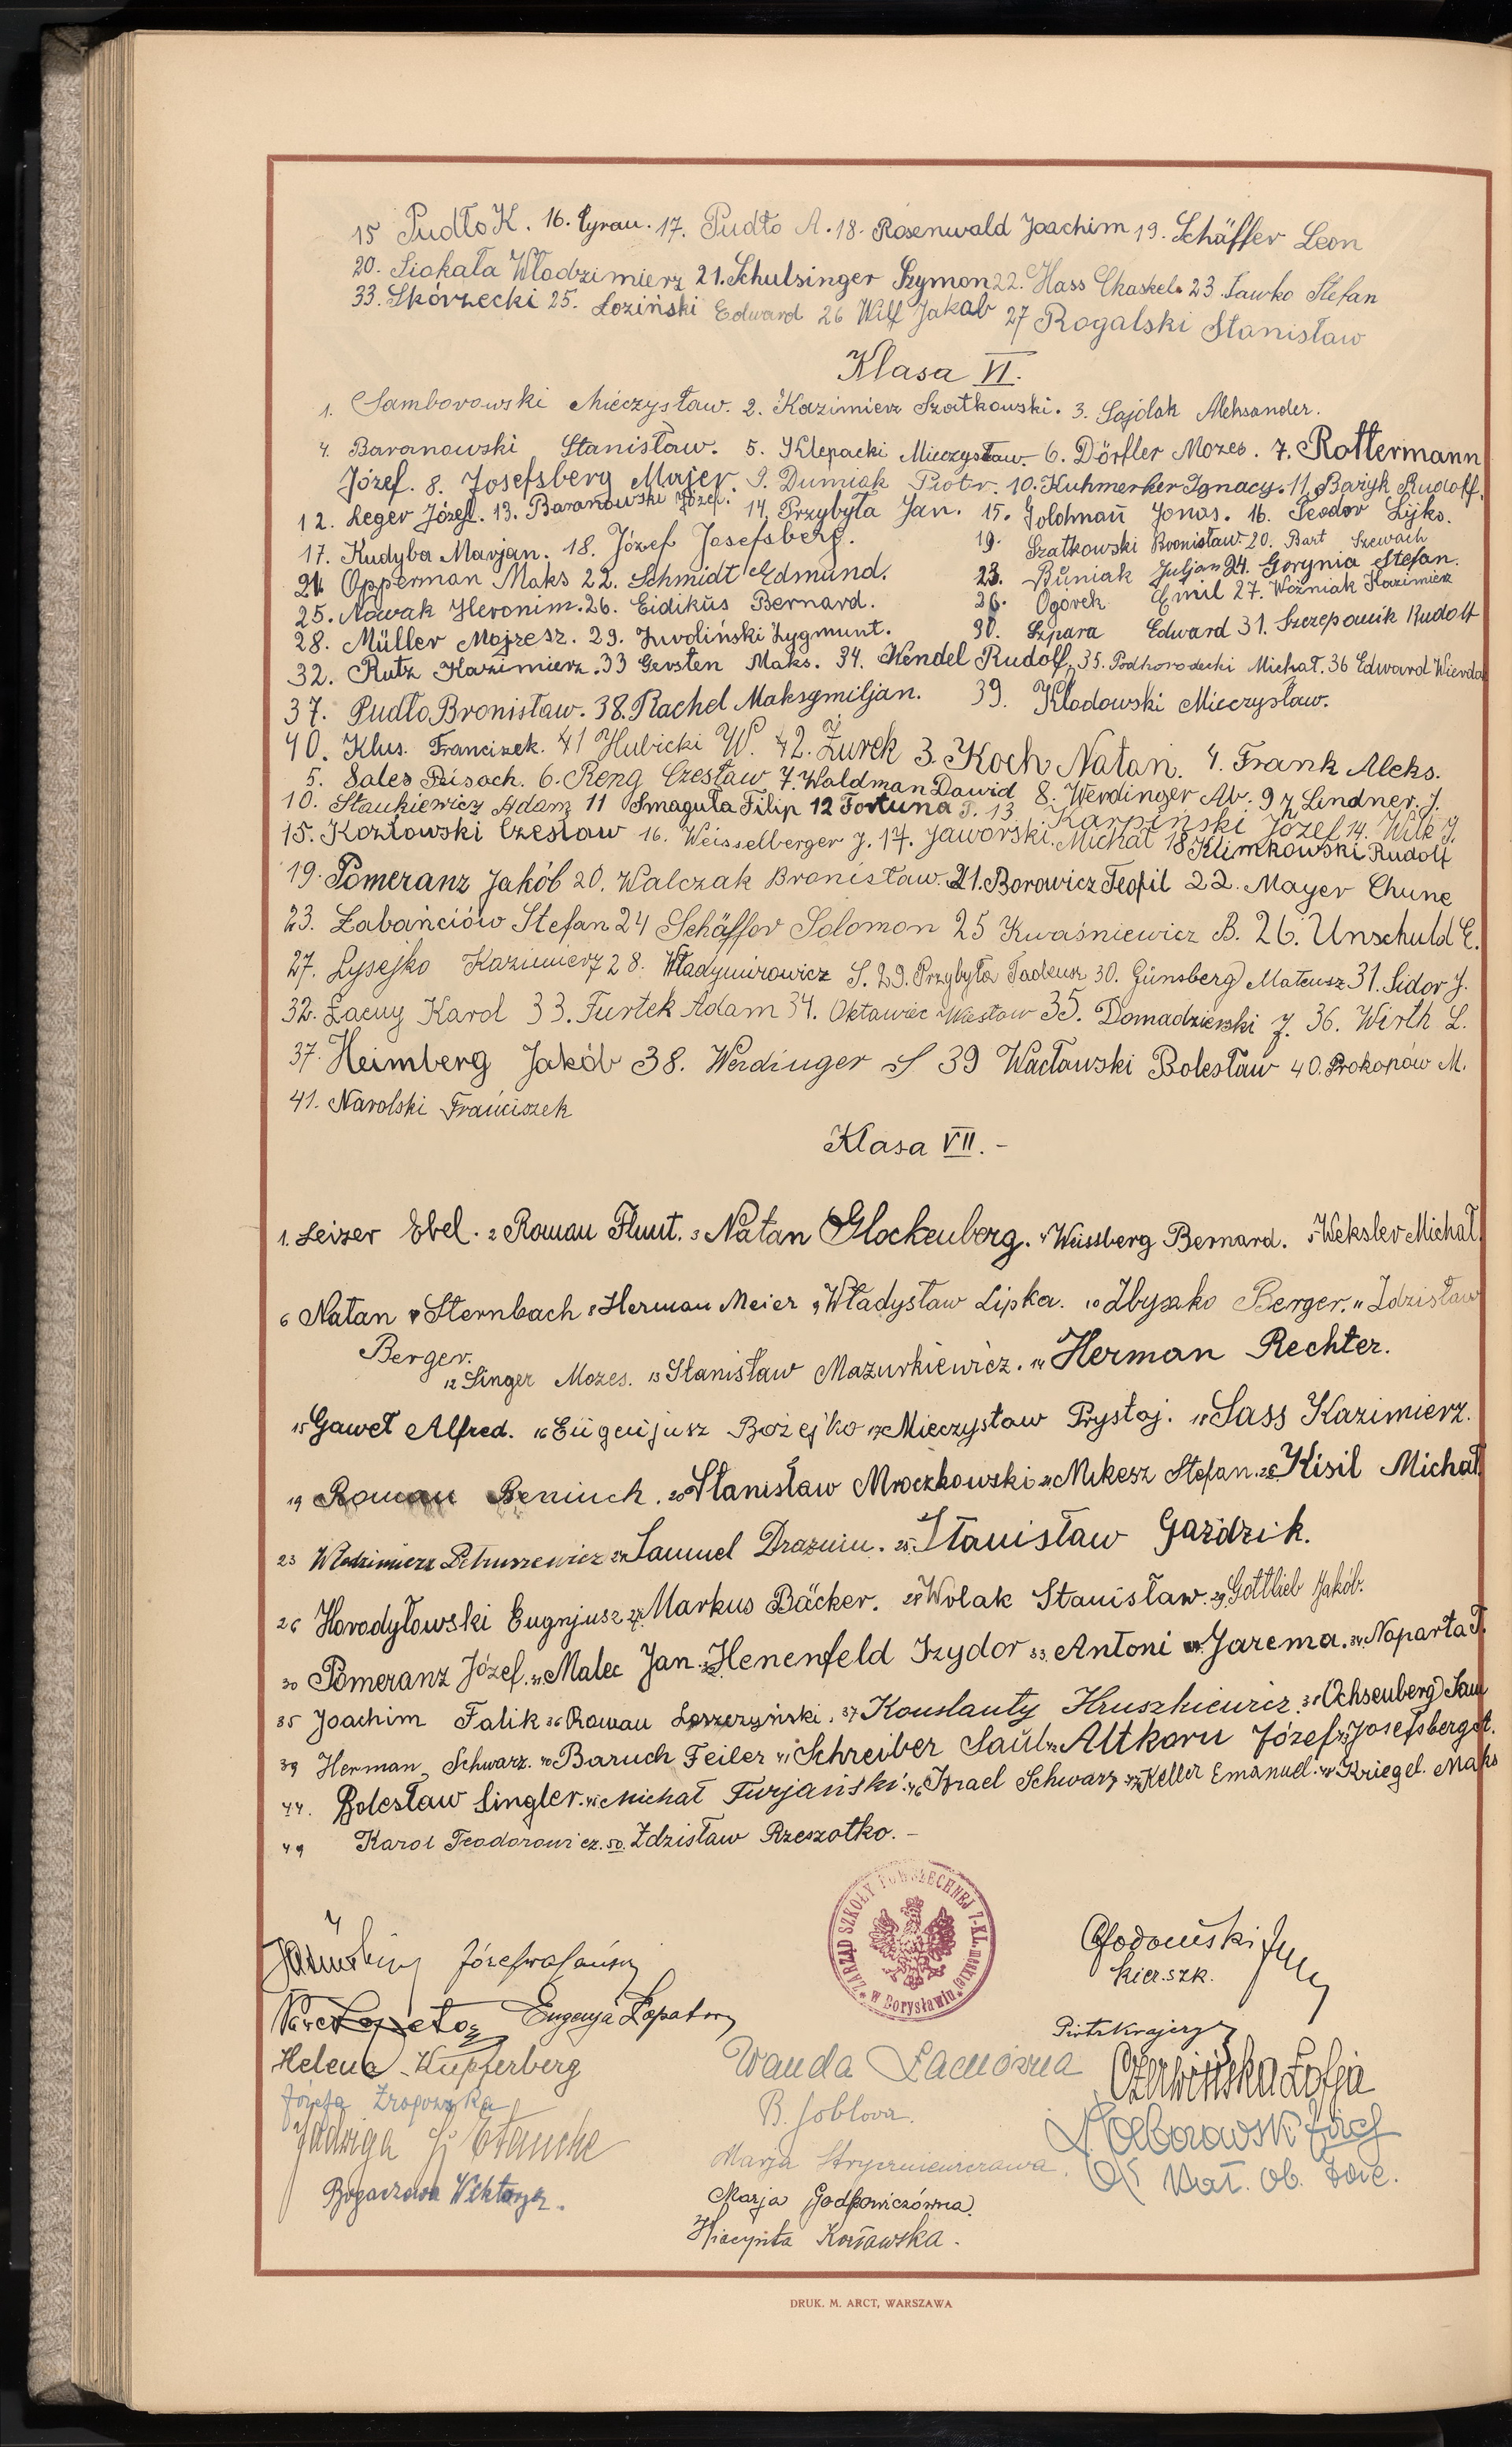 15 Pudło K. 16. Cyran. 17. Pudło A. 18. Rosenwald Joachim 19. Schäffer Leon
20. Siakała Włodzimierz 21. Schulsinger Szymon 22. Hass Chaskel. 23 Sawko Stefan
33. Skórzecki 25. Łoziński Edward 26 Wilf Jakob 27 Rogalski Stanisław
Klasa VI.
1. Samborowski Mieczysław. 2. Kazimierz Szatkowski. 3. Sajdak Aleksander.
4. Baranowski Stanisław. 5. Klepacki Mieczysław. 6. Dörfler Mozes. 7. Rottermann
Józef. 8. Josefsberg Majer. 9. Dumiak Piotr. 10. Kuhmerker Ignacy. 11. Bażyk Rudolf.
12. Leger Józef. 13. Baranowski Józef. 14. Przybyła Jan. 15. Goldman Jonas. 16. Teodor Lijko.
17. Kudyba Marjan. 18. Józef Josefsberg. 19. Szatkowski Bronisław. 20. Bart Szewach
21. Opperman Maks 22. Schmidt Edmund. 23. Buniak Juljan 24. Gorynia Stefan.
25. Nowak Heronim. 26. Eidikus Bernard. 26. Ogórek Emil 27. Woźniak Kazimierz
28. Müller Mojzesz. 29. Zwoliński Zygmunt. 30. Szpara Edward 31. Szczepanik Rudolf
32. Rutz Kazimierz. 33 Gersten Maks. 34. Wendel Rudolf, 35. Podhorodecki Michał. 36 Edward Wierdak
37. Pudło Bronisław. 38. Rachel Maksymiljan. 39. Kładowski Mieczysław.
40. Klus. Franciszek. 41 Hubicki W. 42. Żurek 3. Koch Natan. 4. Frank Aleks.
5. Sales Peisach. 6. Reng Czesław 7. Waldman Dawid 8. Werdinger Ab. 9 Lindner. J.
10. Stankiewicz Adam 11 Smaguła Filip 12 Fortuna T. 13. Karpiński Józef 14. Wilk J.
15. Kozłowski Czesław 16. Weisselberger J. 17. Jaworski. Michał 18 Klimkowski Rudolf
19. Pomeranz Jakób 20. Walczak Bronisław. 21. Borowicz Teofil 22. Mayer Chune
23. Zabańciów Stefan 24 Schäffer Solomon 25 Kwaśniewicz B. 26. Unschuld E.
27. Łysejko Kazimierz 28. Władymirowicz S. 29. Przybyła Tadeusz 30. Günsberg Mateusz 31. Sidor J.
32. Zacny Karol 33. Furtek Adam 34. Oktawiec Wacław 35. Domadzierski J. 36. Wirth L.
37. Heimberg Jakób 38. Werdinger S 39 Wacławski Bolesław 40. Prokopów M.
41. Narolski Franciszek
Klasa VII. -
1. Leizer Ebel. 2 Roman Flunt. 3 Natan Glockenberg. 4 Weissberg Bernard. 5 Weksler Michał.
6 Natan Sternbach 8 Herman Meier 9 Władysław Lipka. 10 Zbyszko Berger. 11 Zdzisław
Berger. 12 Singer Mozes. 13 Stanisław Mazurkiewicz. 14 Herman Rechter.
15 Gaweł Alfred. 16 Eugenjusz Bożejko 17 Mieczysław Prystaj. 18 Sass Kazimierz.
19 Roman Beniuch. 20 Stanisław Mroczkowski 21 Mikesz Stefan. 22 Kisil Michał
23 Włodzimierz Petruszewicz 24 Samuel Draznin. 25. Stanisław Gaździk.
26 Horodyłowski Eugnjusz 27. Markus Bäcker. 28 Wolak Stanisław. 29. Gottlieb Jakób.
30 Pomeranz Józef. 31. Malec Jan. 32 Henenfeld Izydor 33. Antoni Jarema. 34. Naparta T.
35 Joachim Falik 36 Roman Leszczyński. 37 Konstanty Hruszkiewicz. 38 Ochsenberg Sam
39 Herman Schwarz. 40 Baruch Feiler 41 Schreiber Saul 42 Altkorn Józef 43 Josefsberg A.
44. Bolesław Singler. 45 Michał Turjański. 46 Izrael Schwarz 47 Keller Emanuel. 48 Kriegel. Maks
49 Karol Teodorowicz. 50. Zdzisław Rzeszotko. -
ZARZĄD SZKOŁY POWSZECHNEJ 7-KL. męskiej w Borysławiu
kier. szk.
Eugenja Łopatow
Piotr Krajczy
Helena Kupferberg
Wanda Zacnówna
Czerwińska Zofja
Józefa
B. Goblowa.
Jadwiga
Marja
Bogaczowa Wiktorja.
Marja Godkowiczówna.
Hiacynta Kozłowska.
DRUK. M. ARCT, WARSZAWA